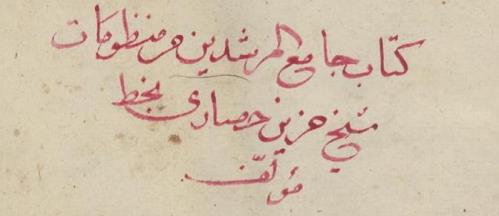 كتاب جامع المرشدين من منظومات
شيخ حزين حصارى بخط
مؤلف